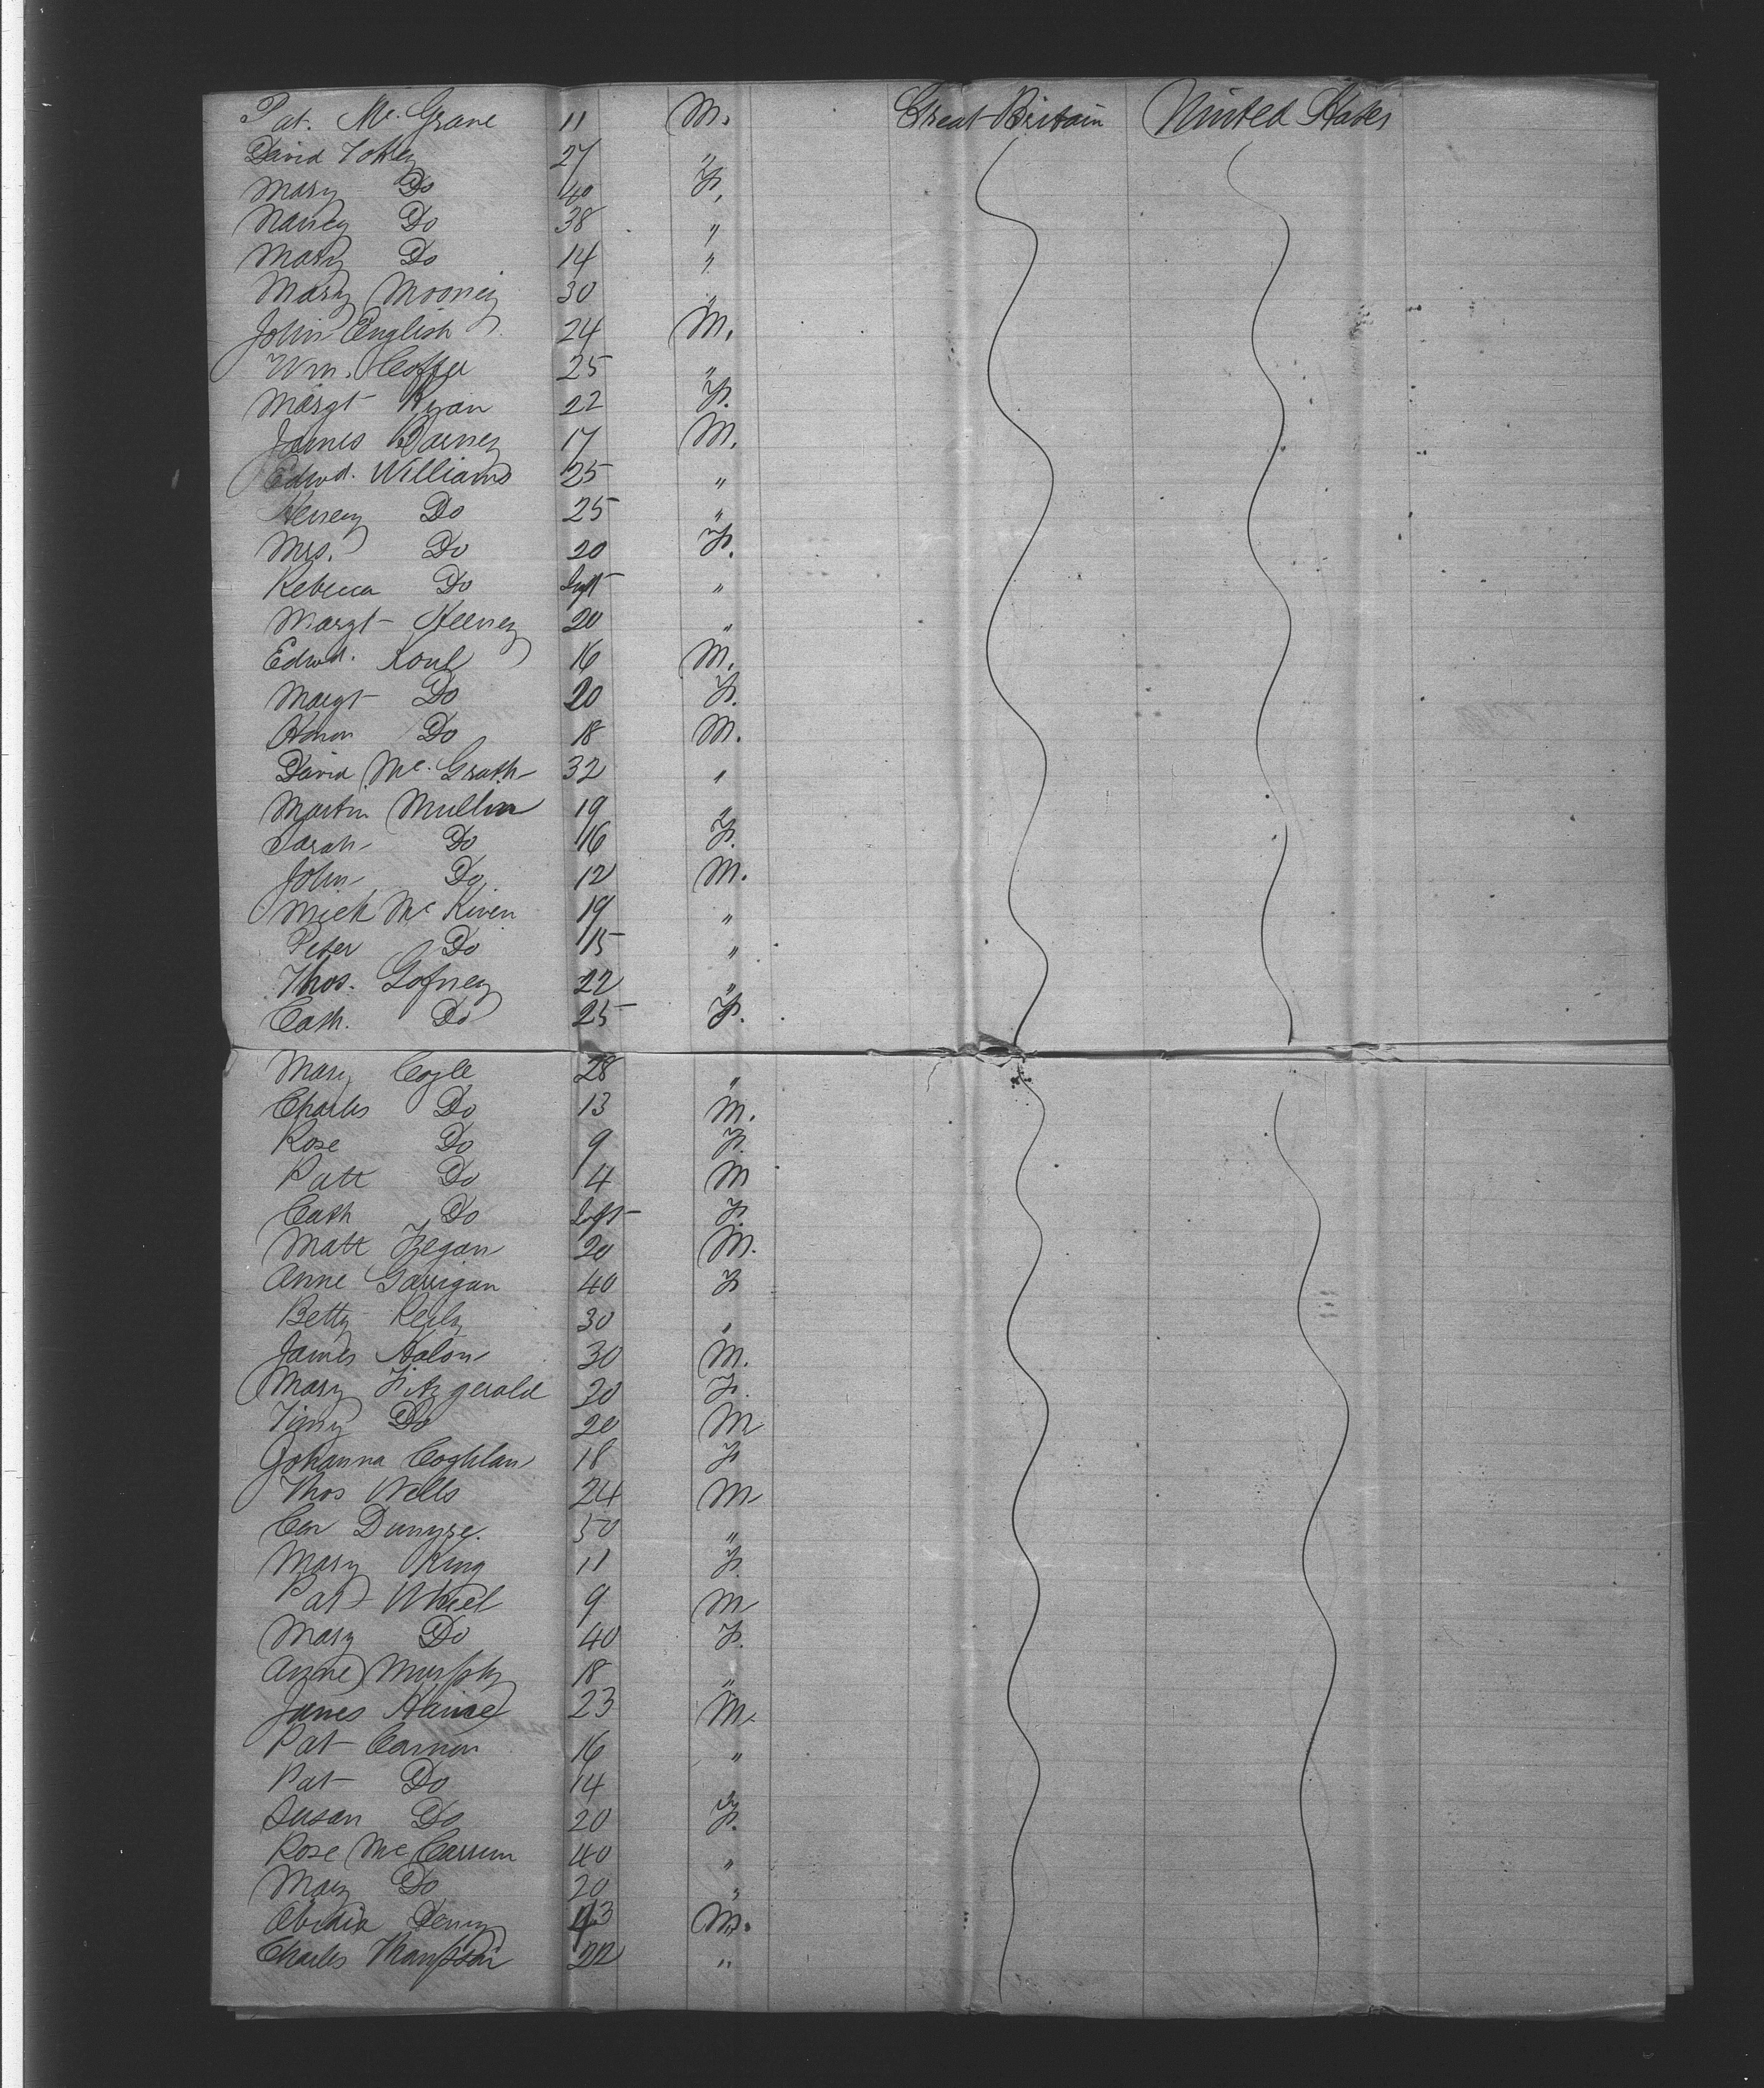 Pat. Mc. Grane 11 M. Great Britain United States
David 27 "
Mary Do 40 F.
Nancy Do 38 "
Mary Do 14 "
Mary Mooney 30 "
John English 24 M.
Wm. Coffee 25 "
Margt Ryan 22 F.
James Barney 17 M.
Edwd. Williams 25 "
Henery Do 25 "
Mrs. Do 20 F.
Rebecca Do Inft "
Margt Keeney 20 "
Edwd. 16 M.
Margt Do 20 F.
Do 18 M.
David Mc. Grath 32 "
Martin Mullin 19 "
Sarah Do 16 F.
John Do 12 M.
Mick Mc Kiven 19 "
Peter Do 15 "
Thos. Gofney 22 "
Cath. Do 25 F.
Mary Cogle 28 "
Charles Do 13 M.
Rose Do 9 F.
Patt Do 4 M
Cath Do Inft F.
Matt Fegan 20 M.
Anne Garrigan 40 F
Betty Reily 30 "
James Halon 30 M.
Mary Fitzgerald 20 F.
Timy Do 20 M
Johanna Coghlan 18 F
Thos Wells 24 M
50 "
Mary King 11 F.
Pat Whiel 9 M
Mary Do 40 F.
Anne Murphy 18 "
James 23 M.
Pat Carnon 16 "
Pat Do 14 "
Susan Do 20 F.
Rose Mc Carron 40 "
Mary Do 20 "
43 M.
Charles Thompson 22 "